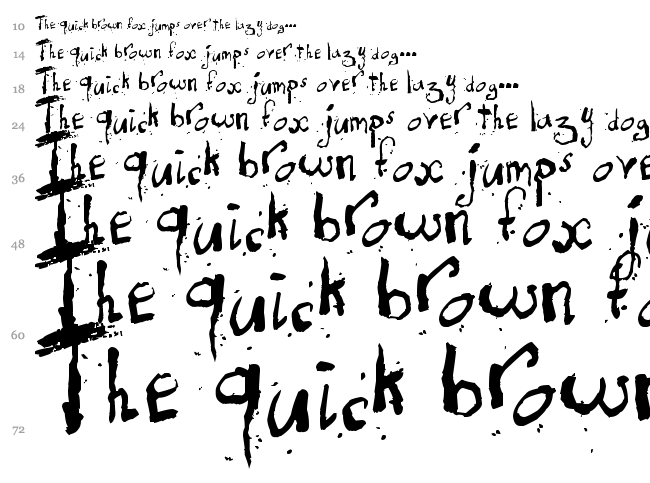 10 The quick brown fox jumps over the lazy dog...
14 The quick brown fox jumps over the lazy dog...
18 The quick brown fox jumps over the lazy dog...
24 The quick brown fox jumps over the lazy dog
36 The quick brown fox jumps ove
48 The quick brown fox j
60 The quick brown fo
72 The quick brown